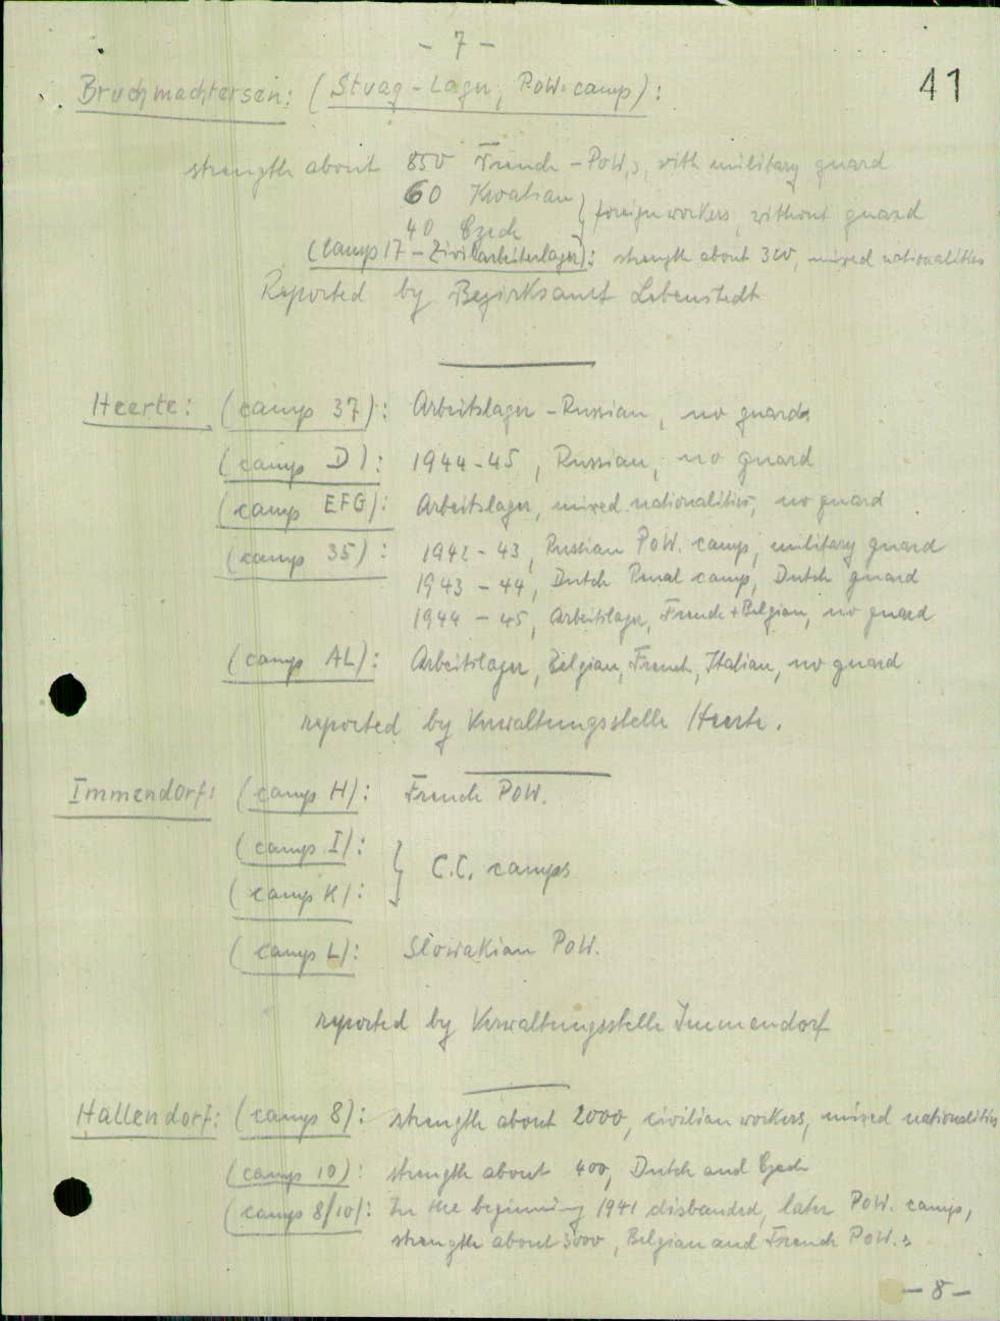 - 7 -
41
Bruchmachtersen: (Stuag-Lager, PoW. camp):
strength about 850 French - PoW,s, with military guard
60 Kroatian
foreign workers, without guard
40 Czech
(Camp 17 - Zivilarbeiterlager): strength about 300, mixed nationalities
Reported by Bezirksamt Lebenstedt
Heerte: (camp 37): Arbeitslager - Russian, no guards
(camp D): 1944-45, Russian, no guard
(camp EFG): Arbeitslager, mixed nationalities, no guard
(camp 35): 1942 - 43, Russian PoW. camp, military guard
1943 - 44, Dutch Penal camp, Dutch guard
1944 - 45, Arbeitslager, French + Belgian, no guard
(camp AL): Arbeitslager, Belgian, French, Italian, no guard
reported by Verwaltungsstelle Heerte.
Immendorf: (camp H): French PoW.
(camp I):
C.C. camps
(camp K):
(camp L): Slowakian PoW.
reported by Verwaltungsstelle Immendorf
Hallendorf: (camp 8): strength about 2000, civilian workers, mixed nationalities
(camp 10): strength about 400, Dutch and Czech
(camp 8/10): In the beginning 1941 disbanded, later PoW. camp,
strength about 3000, Belgian and French PoW.s
- 8 -